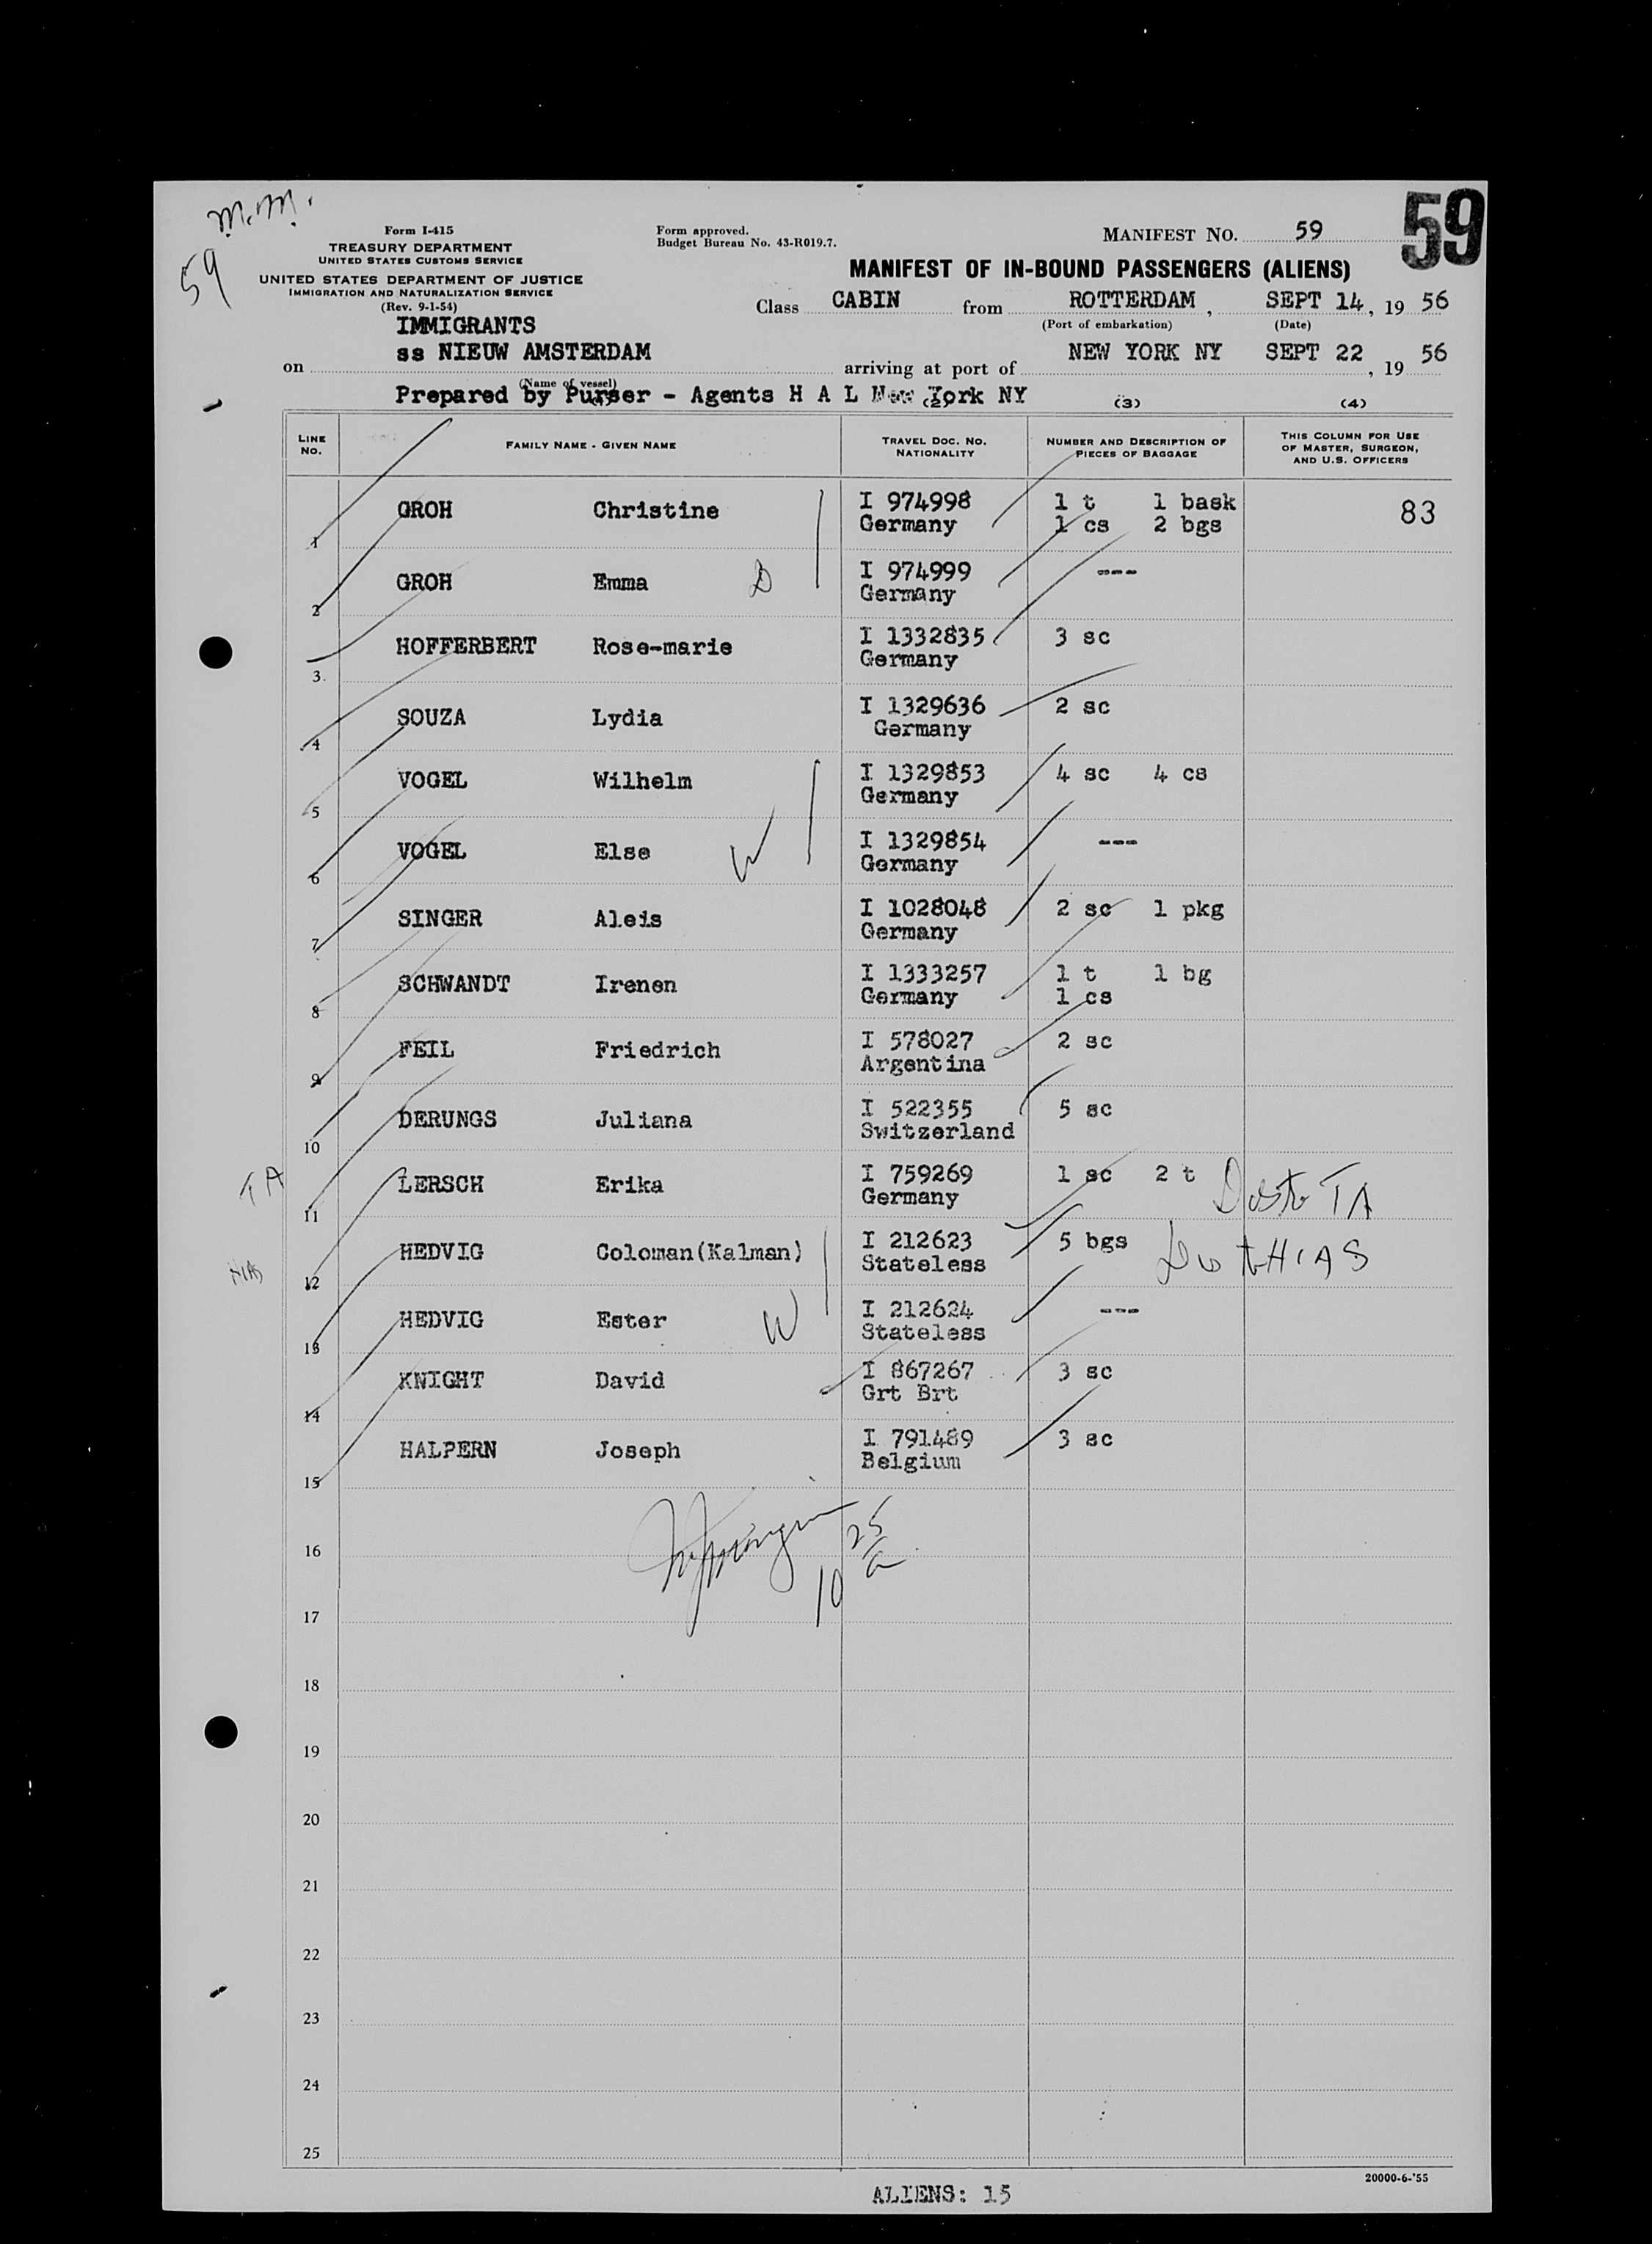 m.m.
59
59
Form I-415
TREASURY DEPARTMENT
UNITED STATES CUSTOMS SERVICE
UNITED STATES DEPARTMENT OF JUSTICE
IMMIGRATION AND NATURALIZATION SERVICE
(Rev. 9-1-54)
Form approved.
Budget Bureau No. 43-R019.7.
MANIFEST NO. 59
MANIFEST OF IN-BOUND PASSENGERS (ALIENS)
Class CABIN from ROTTERDAM, SEPT 14, 19 56
(Port of embarkation) (Date)
IMMIGRANTS
on ss NIEUW AMSTERDAM arriving at port of NEW YORK NY SEPT 22, 19 56
(Name of vessel)
Prepared by Purser - Agents H A L New York NY
(2) (3) (4)
LINE NO. FAMILY NAME - GIVEN NAME TRAVEL DOC. NO. NATIONALITY NUMBER AND DESCRIPTION OF PIECES OF BAGGAGE THIS COLUMN FOR USE OF MASTER, SURGEON, AND U.S. OFFICERS
1 GROH Christine I 974998 Germany 1 t 1 bask 1 cs 2 bgs 83
2 GROH Emma D I 974999 Germany ---
3. HOFFERBERT Rose-marie I 1332835 Germany 3 sc
4 SOUZA Lydia I 1329636 Germany 2 sc
5 VOGEL Wilhelm I 1329853 Germany 4 sc 4 cs
6 VOGEL Else W I 1329854 Germany ---
7 SINGER Aleis I 1028048 Germany 2 sc 1 pkg
8 SCHWANDT Irenen I 1333257 Germany 1 t 1 bg 1 cs
9 FEIL Friedrich I 578027 Argentina 2 sc
10 DERUNGS Juliana I 522355 Switzerland 5 sc
TA 11 LERSCH Erika I 759269 Germany 1 sc 2 t TA
HIAS 12 HEDVIG Coloman(Kalman) I 212623 Stateless 5 bgs HIAS
13 HEDVIG Ester W I 212624 Stateless ---
14 KNIGHT David I 867267 Grt Brt 3 sc
15 HALPERN Joseph I 791489 Belgium 3 sc
10 25/a
16
17
18
19
20
21
22
23
24
25
20000-6-'55
ALIENS: 15